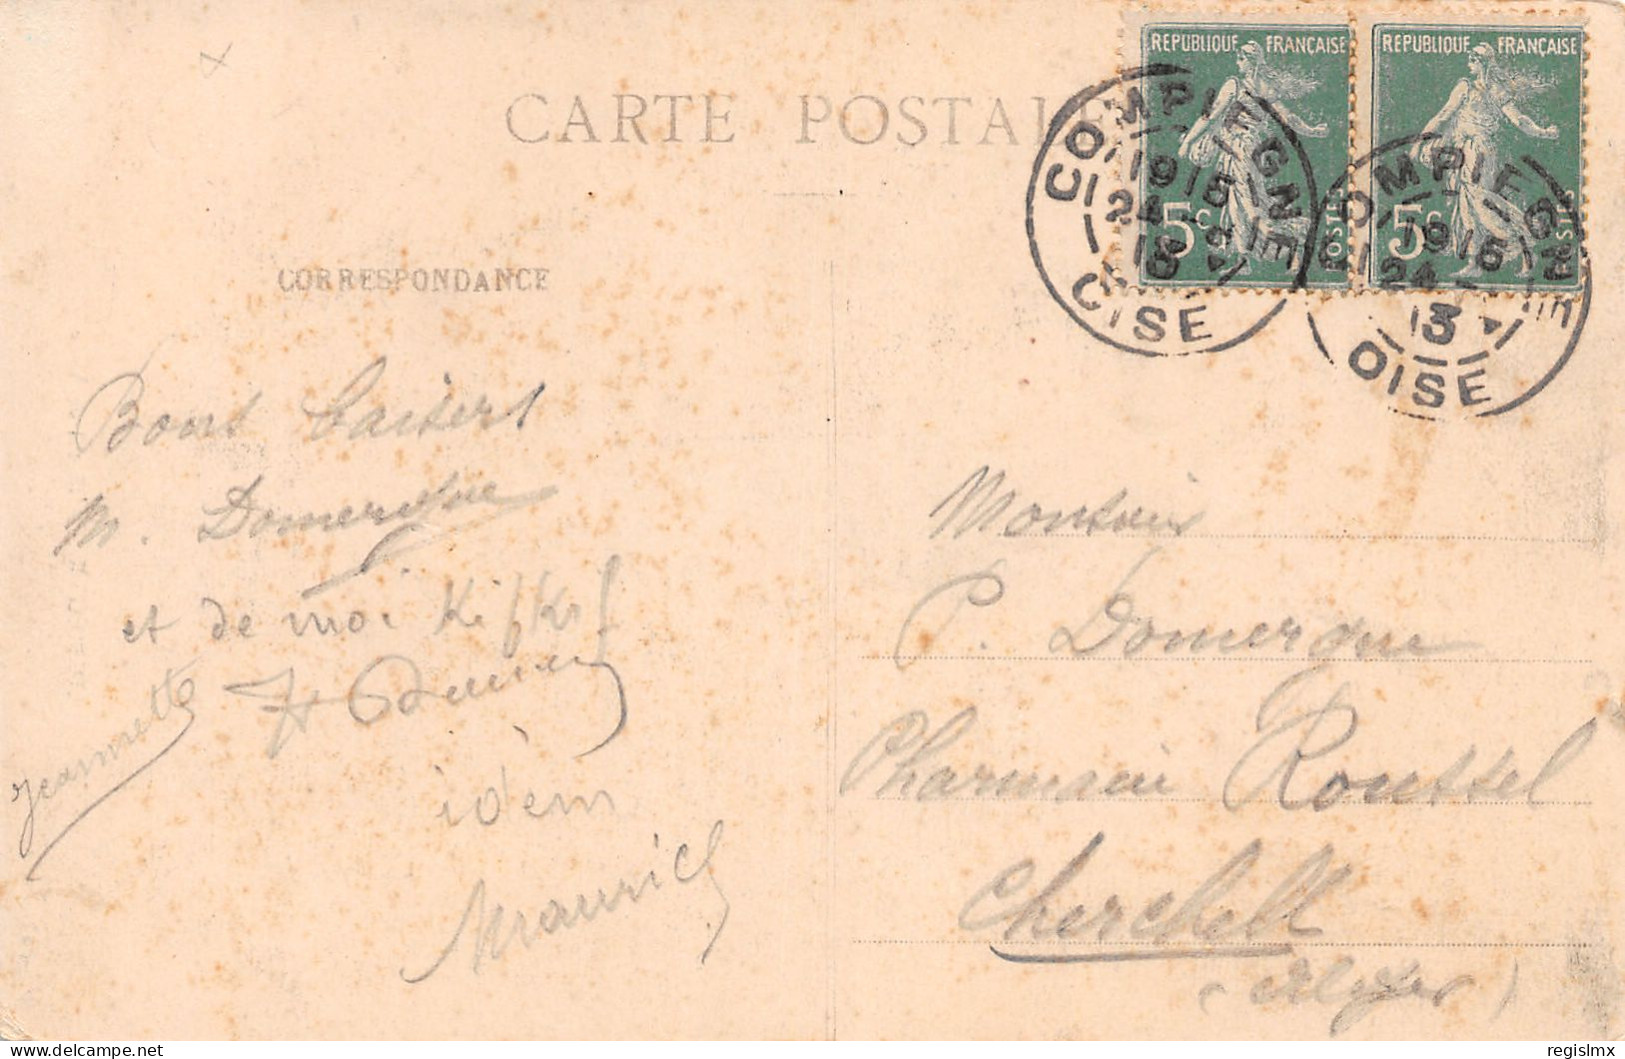 CARTE POSTALE
CORRESPONDANCE
Bons baisers
M. Domergue
et de moi Kifkif
Jeannette
idem
Maurice
REPUBLIQUE FRANÇAISE
5c
POSTES
REPUBLIQUE FRANÇAISE
5c
POSTES
COMPIEGNE
1915
24
OISE
COMPIEGNE
1915
24
13
OISE
Monsieur
P. Domergue
Pharmacie Roussel
Cherchell
(Alger)
regislmx